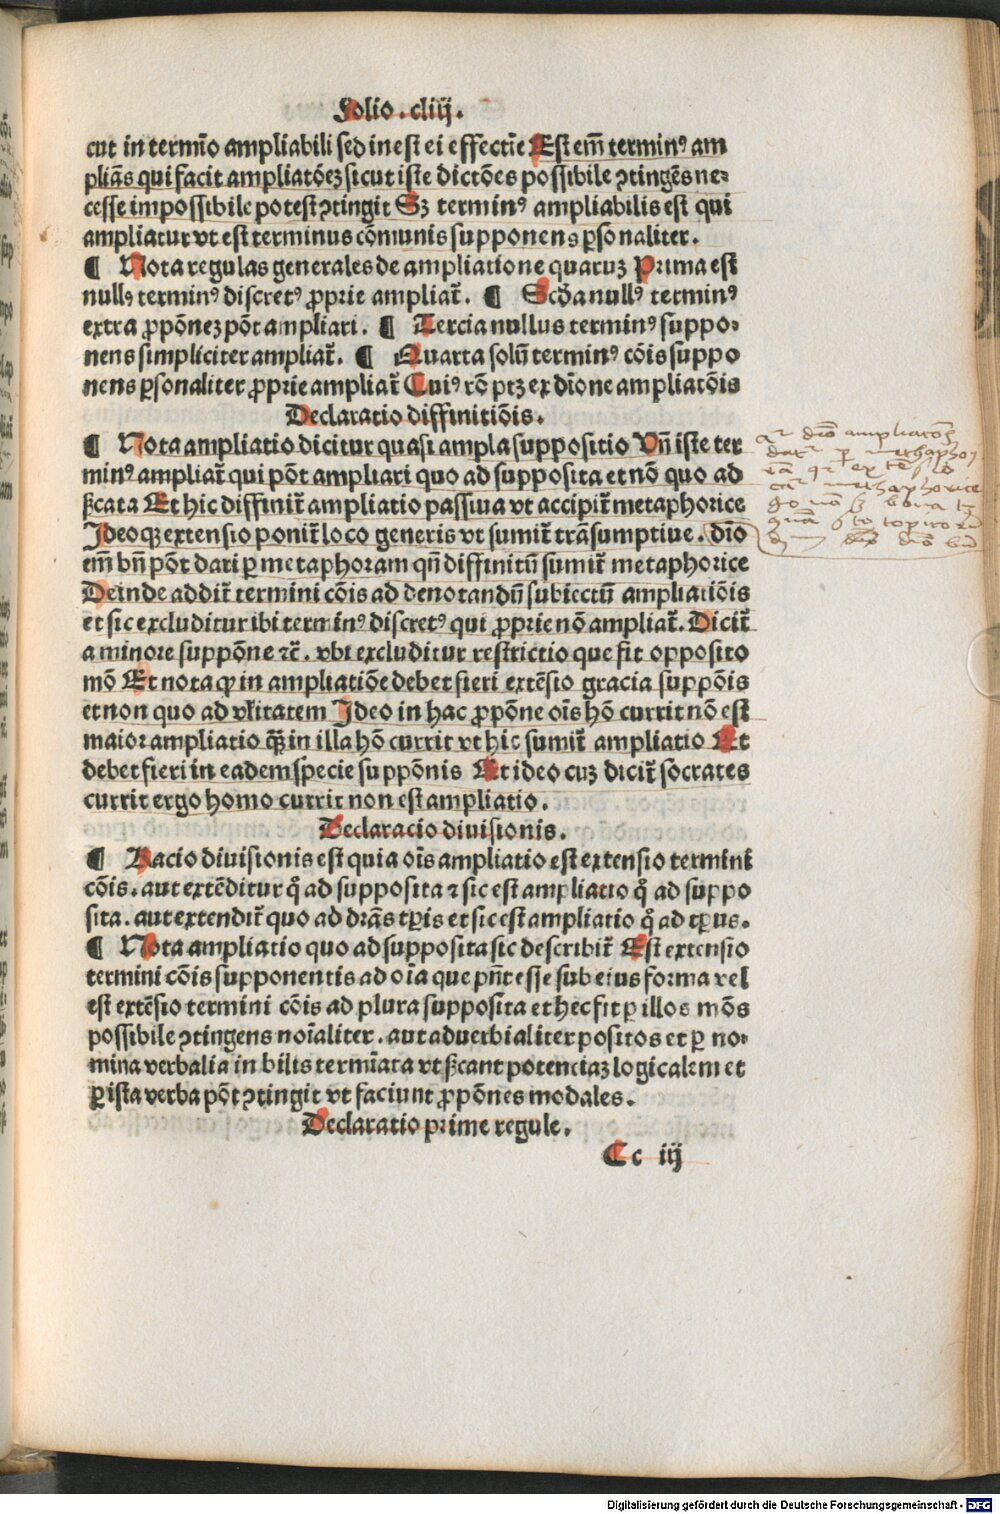 Folio . cliij .
cut in termīo ampliabili sed inest ei effectīe Est em̄ terminꝰ am
pliās qui facit ampliatōeꝫ sicut iste dictōes possibile ꝯtingēs ne⸗
cesse impossibile potest ꝯtingit Sꝫ terminꝰ ampliabilis est qui
ampliatur vt est terminus cōmunis supponens ꝑsonaliter .
¶ Nota regulas generales de ampliatione quaruꝫ Prima est
nullꝰ terminꝰ discretꝰ ꝓprie ampliat̄ . ¶ Scḋa nullꝰ terminꝰ
extra ꝓpōneꝫ pōt ampliari . ¶ Tercia nullus terminꝰ suppo⸗
nens simpliciter ampliat̄ . ¶ Quarta solū terminꝰ cōis suppo
nens ꝑsonaliter ꝓprie ampliat̄ Cuiꝰ rō ptꝫ ex dīone ampliatōis
Declaratio diffinitiōis .
¶ Nota ampliatio dicitur quasi ampla suppositio Vn̄ iste ter
minꝰ ampliat̄ qui pōt ampliari quo ad supposita et nō quo ad
ſꝫcata Et hic diffinit̄ ampliatio passiua vt accipit̄ metaphorice
Ideo qꝫ extensio ponit̄ loco generis vt sumit̄ trāsumptiue . dīo
em̄ bn̄ pōt dari ꝑ metaphoram qn̄ diffinitū sumit̄ metaphorice
Deinde addit̄ termini cōis ad denotandū subiectū ampliatiōis
et sic excluditur ibi terminꝰ discretꝰ qui ꝓprie nō ampliat̄ . Dicit̄
a minore suppōne ⁊c̄ . vbi excluditur restrictio que fit opposito
mō Et nota ꝙ in ampliatiōe debet fieri extēsio gracia suppōis
et non quo ad vẜitatem Ideo in hac ꝓpōne oīs hō currit nō est
maior ampliatio q̄ꝫ in illa hō currit vt hic sumit̄ ampliatio Et
debet fieri in eadem specie suppōnis Et ideo cuꝫ dicit̄ socrates
currit ergo homo currit non est ampliatio .
Declaracio diuisionis .
¶ Racio diuisionis est quia oīs ampliatio est extensio termini
cōis . aut extēditur qͦ ad supposita ⁊ sic est ampliatio qͦ ad suppo
sita . aut extendit̄ quo ad dr̄as tꝑis et sic est ampliatio qͦ ad tꝑus .
¶ Nota ampliatio quo ad supposita sic describit̄ Est extensio
termini cōis supponentis ad oīa que pn̄t esse sub eius forma vel
est extēsio termini cōis ad plura supposita et hec fit ꝑ illos mōs
possibile ꝯtingens noīaliter . aut aduerbialiter positos et ꝑ no⸗
mina verbalia in bilis termīata vt ſꝫcant potenciaꝫ logicalem et
ꝑ ista verba pōt ꝯtingit vt faciunt ꝓpōnes modales .
Declaratio prime regule .
Cc iij
Digitalisierung gefördert durch die Deutsche Forschungsgemeinschaft - DFG